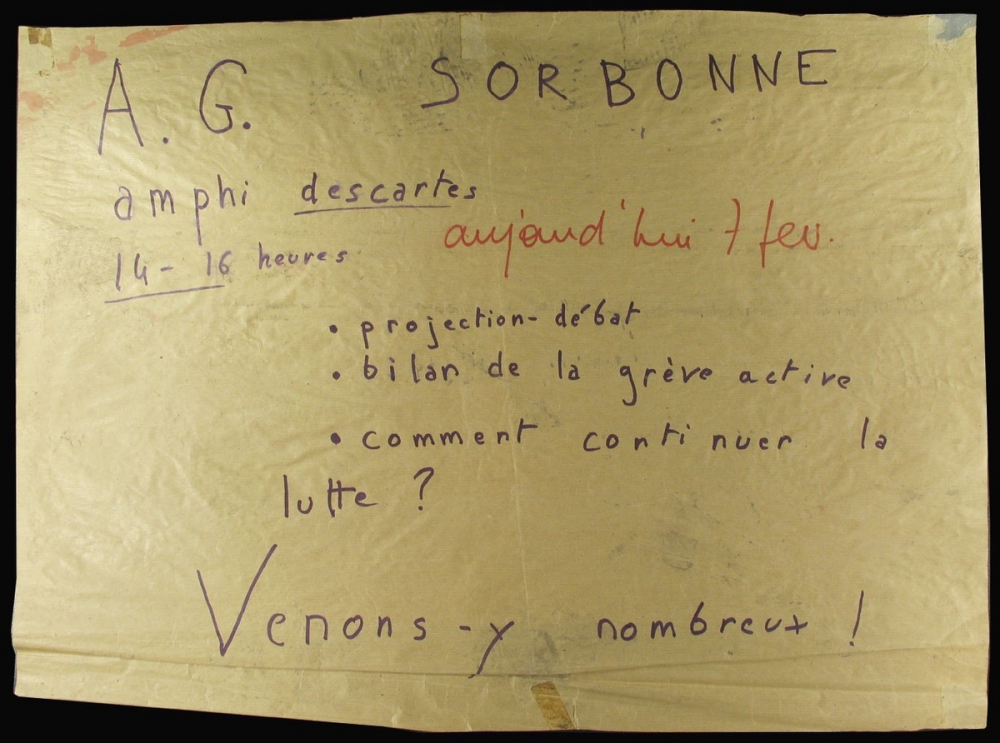 A. G. SORBONNE
amphi descartes
aujourd'hui 7 fev.
14 - 16 heures
• projection-débat
• bilan de la grève active
• comment continuer la
lutte ?
Venons-y nombreux !